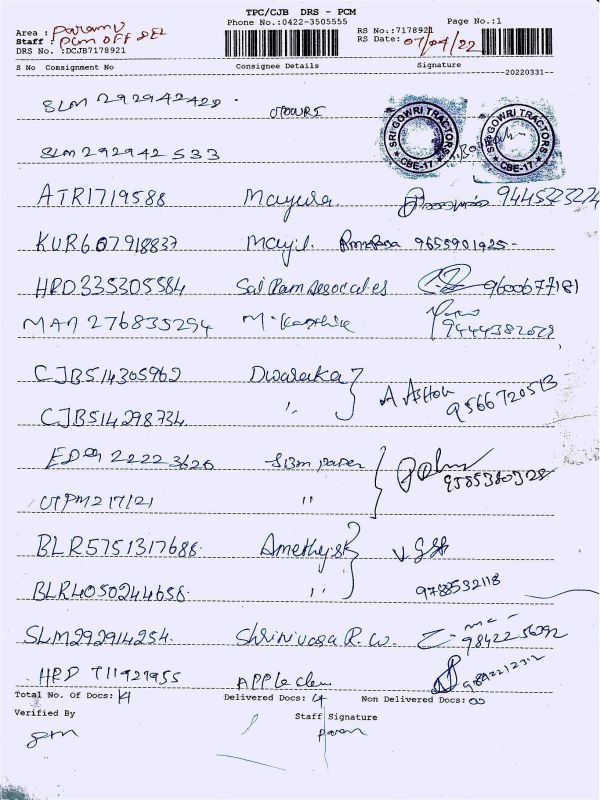 TPC/CJB DRS - PCM
Phone No.:0422-3505555 Page No.:1
Area : Paramu
Staff : PCM OFF DEL
DRS No. :DCJB7178921
RS No.:7178921
RS Date: 07/04/22
S No Consignment No Consignee Details Signature
--20220331--
SLM 292942428
SRI GOWRI TRACTORS
CBE-17
SRI GOWRI TRACTORS
CBE-17
SLM292942 533
ATR1719588 Mayura
KUR607918837 Mayil 9655901925
HRD335305584 Sai Ram Associates 9600677181
MAA 276835294 M. Karthik
CJB514305962 Dwaraka A Ashok
CJB514298734 " 9566720513
2222 3626 SBM paper
217121 " 9585380328
BLR5751317688 Amethyst
BLR4050244656 " 9788532118
SLM292914254 Shrinivasa R.W.
HRD 711927955 APPle Clen
Total No. of Docs: 14 Delivered Docs: 14 Non Delivered Docs: 00
Verified By Staff Signature